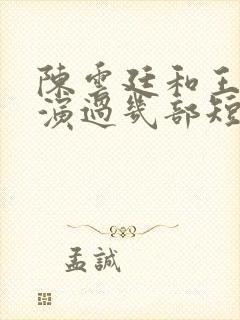 陳雲廷和王
演過幾部短
孟誠